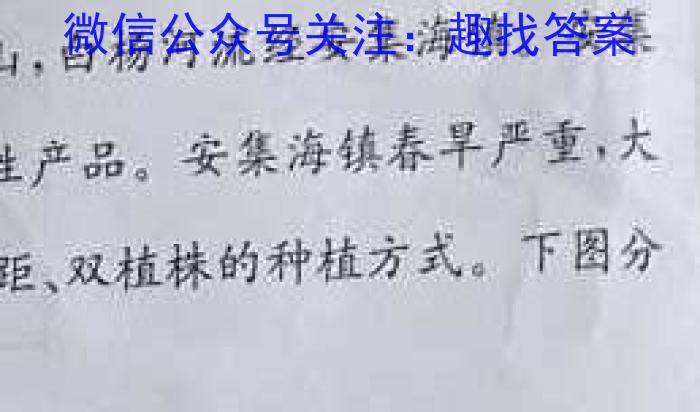 微信公众号关注：趣找答案
山，白杨河流经安集海
性产品。安集海镇春旱严重，大
距、双植株的种植方式。下图分